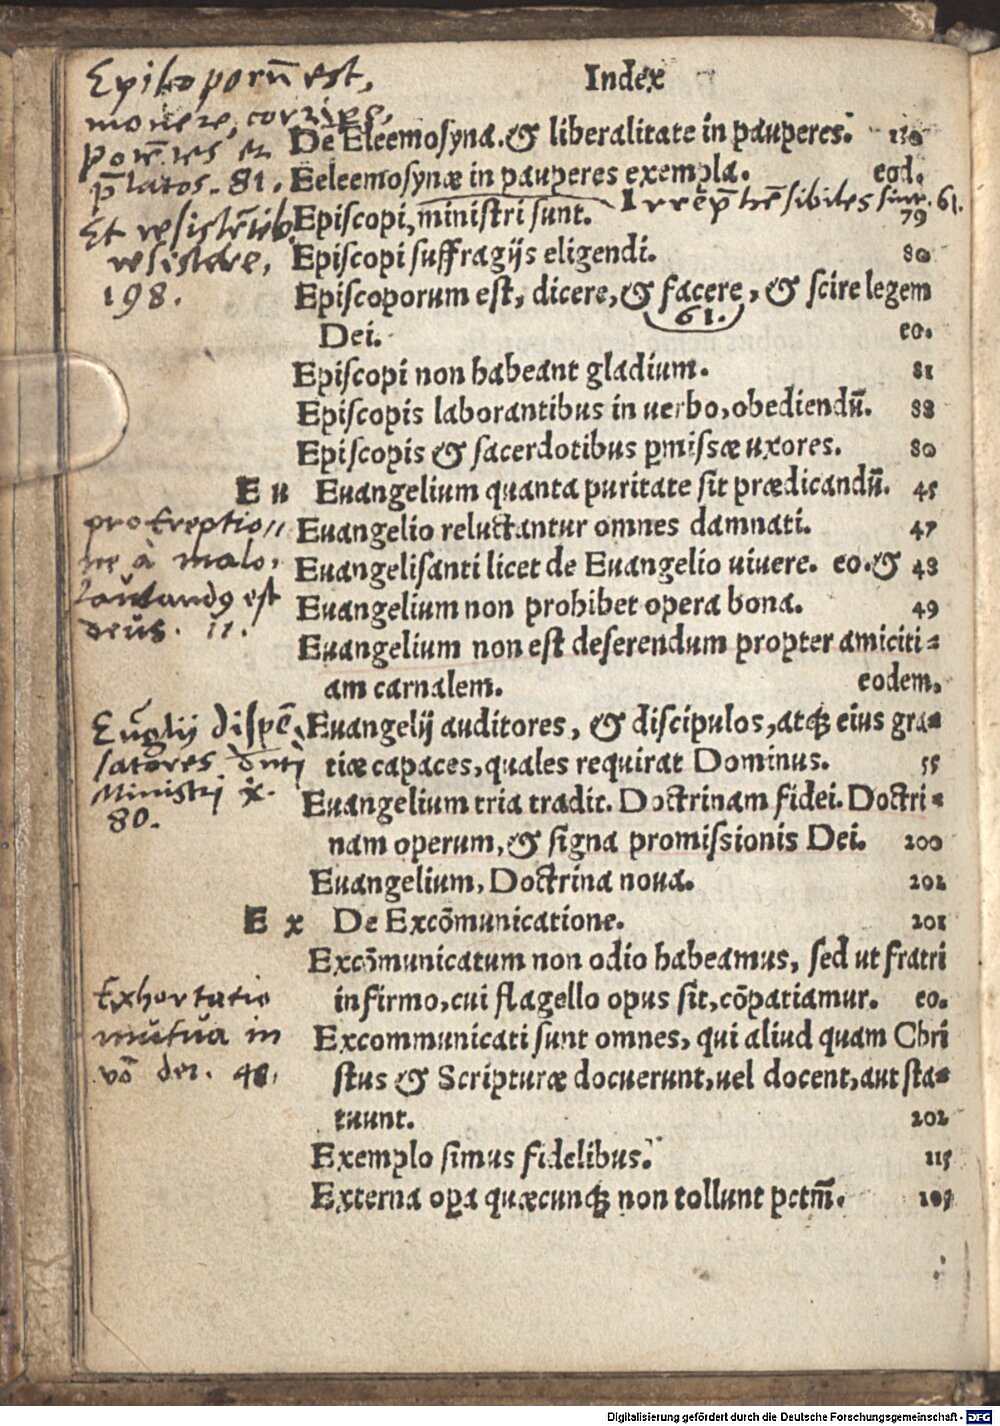 Index
De Eleemosyna. & liberalitate in pauperes. 110
Eeleemosynæ in pauperes exempla. eod.
Episcopi, ministri sunt. 79
Irrep̄hēsibiles sint. 61.
Episcopi suffragijs eligendi. 80
Episcoporum est, dicere, & facere, & scire legem
61.
Dei. eo.
Episcopi non habeant gladium. 81
Episcopis laborantibus in uerbo, obediendũ. 88
Episcopis & sacerdotibus ꝑmissæ uxores. 80
E u Euangelium quanta puritate sit prædicandũ. 45
Euangelio reluctantur omnes damnati. 47
Euangelisanti licet de Euangelio uiuere. eo. & 48
Euangelium non prohibet opera bona. 49
Euangelium non est deserendum propter amiciti⸗
am carnalem. eodem.
Euangelij auditores, & discipulos, atqꝫ eius gra⸗
tiæ capaces, quales requirat Dominus. 55
Euangelium tria tradit. Doctrinam fidei. Doctri⸗
nam operum, & signa promissionis Dei. 200
Euangelium, Doctrina noua. 202
E x De Excōmunicatione. 201
Excōmunicatum non odio habeamus, sed ut fratri
infirmo, cui flagello opus sit, cōpatiamur. eo.
Excommunicati sunt omnes, qui aliud quam Chri
stus & Scripturæ docuerunt, uel docent, aut sta⸗
tuunt. 202
Exemplo simus fidelibus. 115
Externa oꝑa quæcunqꝫ non tollunt pctm̄.
Episkoporū est,
monere, corripe,
potētes et
p̄latos. 81.
Et resistētib.
resistere,
198.
protreptio⸗
ne à malo,
laudandus est
deus. 11.
Euglij dispē⸗
satores
Ministri x.
80.
Exhortatio
mutua in
48.
Digitalisierung gefördert durch die Deutsche Forschungsgemeinschaft - DFG